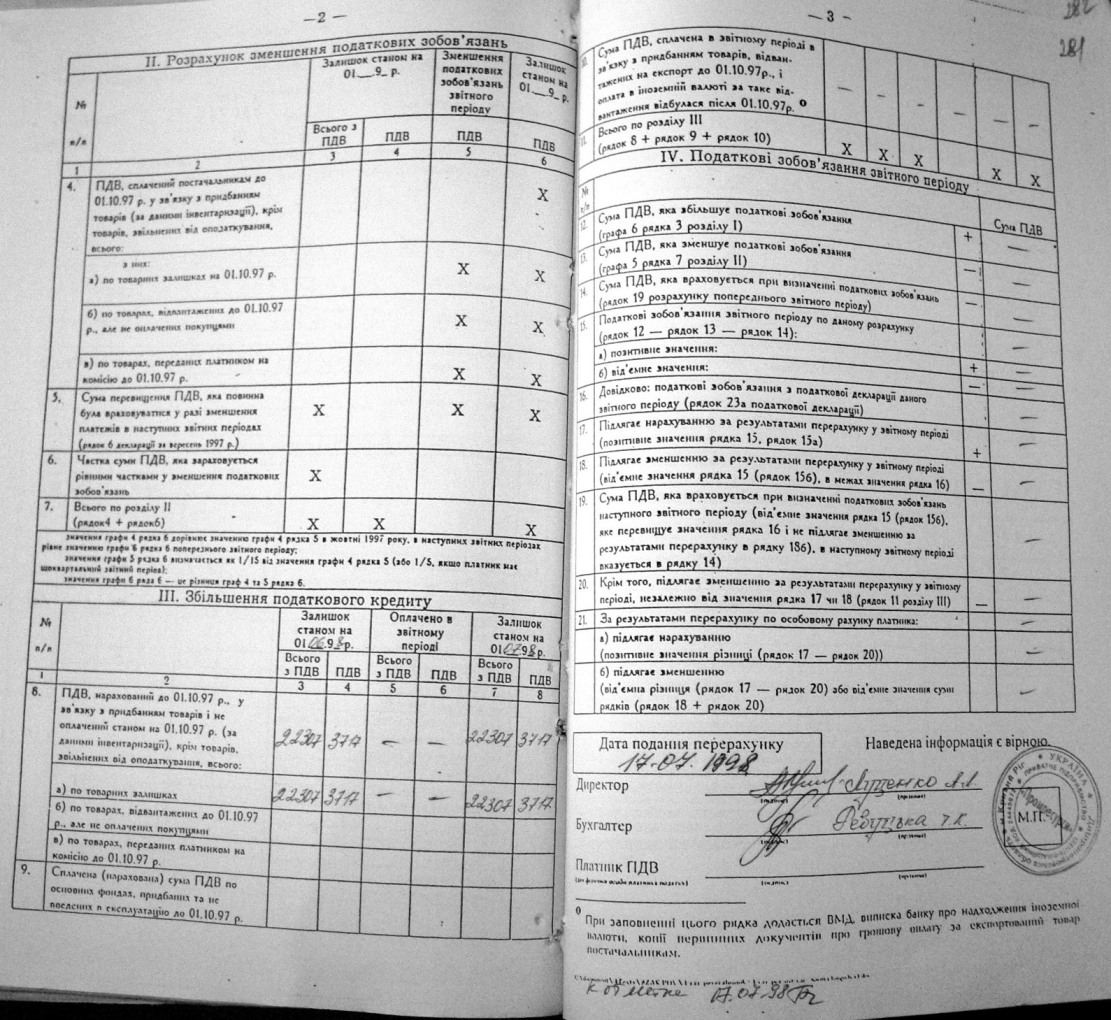 — 2 —
II. Розрахунок зменшення податкових зобов'язань
№ п/п
Залишок станом на 01.__9_ р.
Зменшення податкових зобов'язань звітного періоду
Залишок станом на 01.__9_ р.
Всього з ПДВ
ПДВ
ПДВ
ПДВ
1 2 3 4 5 6
4. ПДВ, сплачений постачальникам до
01.10.97 р. у зв'язку з придбанням
товарів (за даними інвентаризації), крім
товарів, звільнених від оподаткування,
всього:
X
з них:
а) по товарних залишках на 01.10.97 р.
X X
б) по товарах, відвантажених до 01.10.97
р., але не оплачених покупцями
X X
в) по товарах, переданих платником на
комісію до 01.10.97 р.
X X
5. Сума перевищення ПДВ, яка повинна
була враховуватися у разі зменшення
платежів в наступних звітних періодах
(рядок 6 декларації за вересень 1997 р.)
X X X
6. Частка суми ПДВ, яка зараховується
рівними частками у зменшення податкових
зобов'язань
X
7. Всього по розділу II
(рядок4 + рядок6)
X X X
значення графи 4 рядка 6 дорівнює значенню графи 4 рядка 5 в жовтні 1997 року, в наступних звітних періодах
рівне значенню графи 6 рядка 6 попереднього звітного періоду;
значення графи 5 рядка 6 визначається як 1/15 від значення графи 4 рядка 5 (або 1/5, якщо платник має
щоквартальний звітний період);
значення графи 6 ряда 6 — це різниця граф 4 та 5 рядка 6.
III. Збільшення податкового кредиту
№ п/п
Залишок станом на 01.06.98р.
Оплачено в звітному періоді
Залишок станом на 01.07.98р.
Всього з ПДВ
ПДВ
Всього з ПДВ
ПДВ
Всього з ПДВ
ПДВ
1 2 3 4 5 6 7 8
8. ПДВ, нарахований до 01.10.97 р., у
зв'язку з придбанням товарів і не
оплачений станом на 01.10.97 р. (за
даними інвентаризації), крім товарів,
звільнених від оподаткування, всього:
22307 3717 — — 22307 3717
а) по товарних залишках
22307 3717 — — 22307 3717
б) по товарах, відвантажених до 01.10.97
р., але не оплачених покупцями
в) по товарах, переданих платником на
комісію до 01.10.97 р.
9. Сплачена (нарахована) сума ПДВ по
основних фондах, придбаних та не
введених в експлуатацію до 01.10.97 р.
— 3 —
282
281
10. Сума ПДВ, сплачена в звітному періоді в
зв'язку з придбанням товарів, відван-
тажених на експорт до 01.10.97р., і
оплата в іноземній валюті за таке від-
вантаження відбулася після 01.10.97р.
— — — — — —
11. Всього по розділу III
(рядок 8 + рядок 9 + рядок 10)
X X X X X
IV. Податкові зобов'язання звітного періоду
№ п/п
Сума ПДВ
12. Сума ПДВ, яка збільшує податкові зобов'язання
(графа 6 рядка 3 розділу I)
+ —
13. Сума ПДВ, яка зменшує податкові зобов'язання
(графа 5 рядка 7 розділу II)
— —
14. Сума ПДВ, яка враховується при визначенні податкових зобов'язань
(рядок 19 розрахунку попереднього звітного періоду)
— —
15. Податкові зобов'язання звітного періоду по даному розрахунку
(рядок 12 — рядок 13 — рядок 14):
—
а) позитивне значення:
+ —
б) від'ємне значення:
— —
16. Довідково: податкові зобов'язання з податкової декларації даного
звітного періоду (рядок 23а податкової декларації)
—
17. Підлягає нарахуванню за результатами перерахунку у звітному періоді
(позитивне значення рядка 15, рядок 15а)
+ —
18. Підлягає зменшенню за результатами перерахунку у звітному періоді
(від'ємне значення рядка 15 (рядок 15б), в межах значення рядка 16)
— —
19. Сума ПДВ, яка враховується при визначенні податкових зобов'язань
наступного звітного періоду (від'ємне значення рядка 15 (рядок 15б),
яке перевищує значення рядка 16 і не підлягає зменшенню за
результатами перерахунку в рядку 18б), в наступному звітному періоді
вказується в рядку 14)
—
20. Крім того, підлягає зменшенню за результатами перерахунку у звітному
періоді, незалежно від значення рядка 17 чи 18 (рядок 11 розділу III)
— —
21. За результатами перерахунку по особовому рахунку платника:
—
а) підлягає нарахуванню
(позитивне значення різниці (рядок 17 — рядок 20))
—
б) підлягає зменшенню
(від'ємна різниця (рядок 17 — рядок 20) або від'ємне значення суми
рядків (рядок 18 + рядок 20)
—
Дата подання перерахунку
17.07.1998
Наведена інформація є вірною.
Директор
Луценко
(підпис) (прізвище)
Бухгалтер
(підпис) (прізвище)
М.П.
УКРАЇНА
м. Кривий Ріг
Платник ПДВ
(підпис) (прізвище)
При заповненні цього рядка додається ВМД, виписка банку про надходження іноземної
валюти, копії первинних документів про грошову оплату за експортований товар
постачальникам.
17.07.98